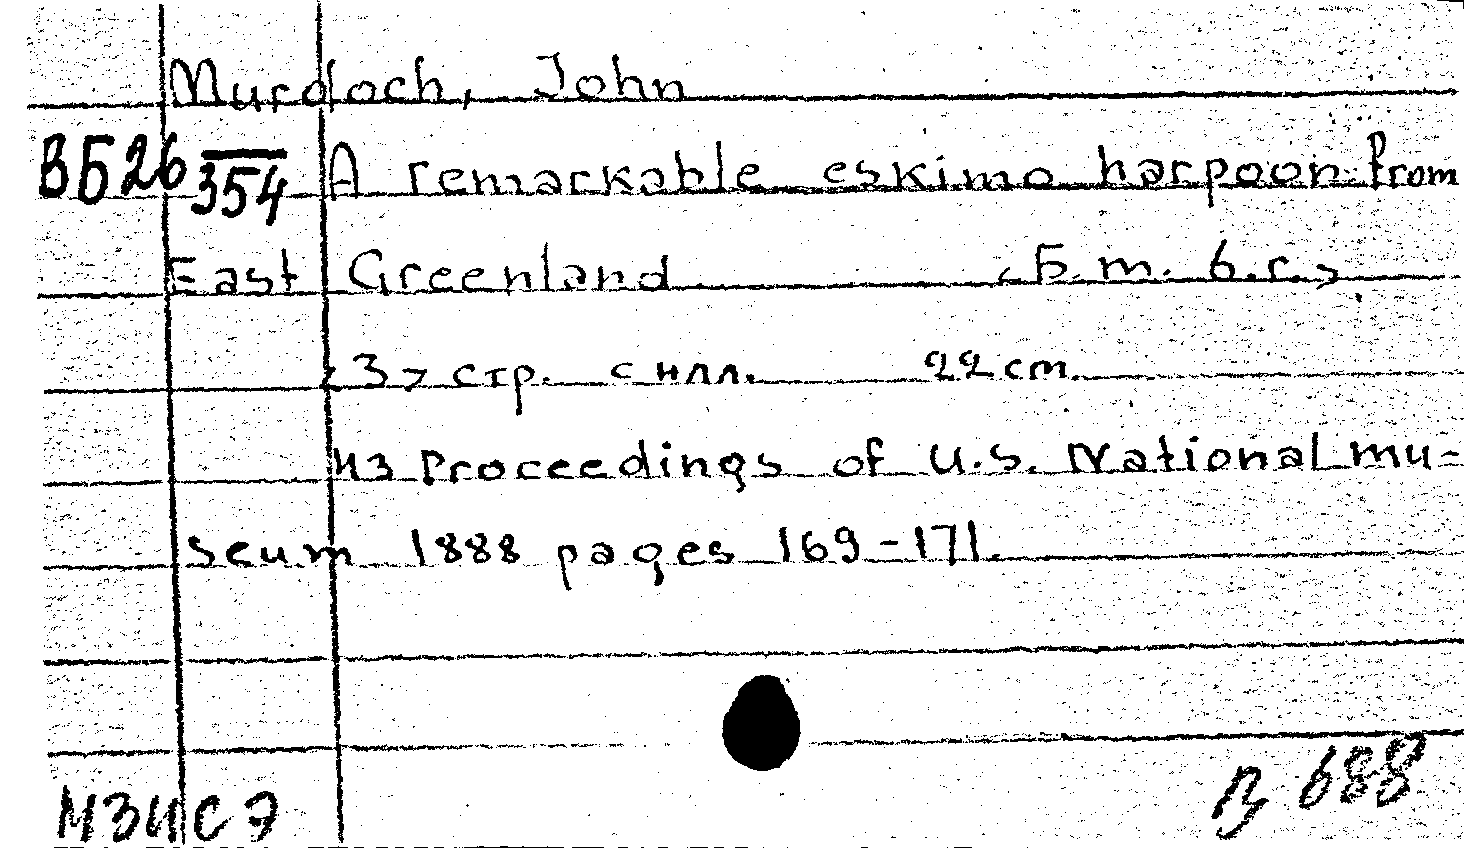 Murdoch, John
ВБ26 354 A remarkable eskimo harpoon from
East Greenland <Б.м. б.г.>
<3> стр. с илл. 22 cm.
Из Proceedings of U.S. National mu-
seum 1888 pages 169-171.
МЗИСЭ
В 688